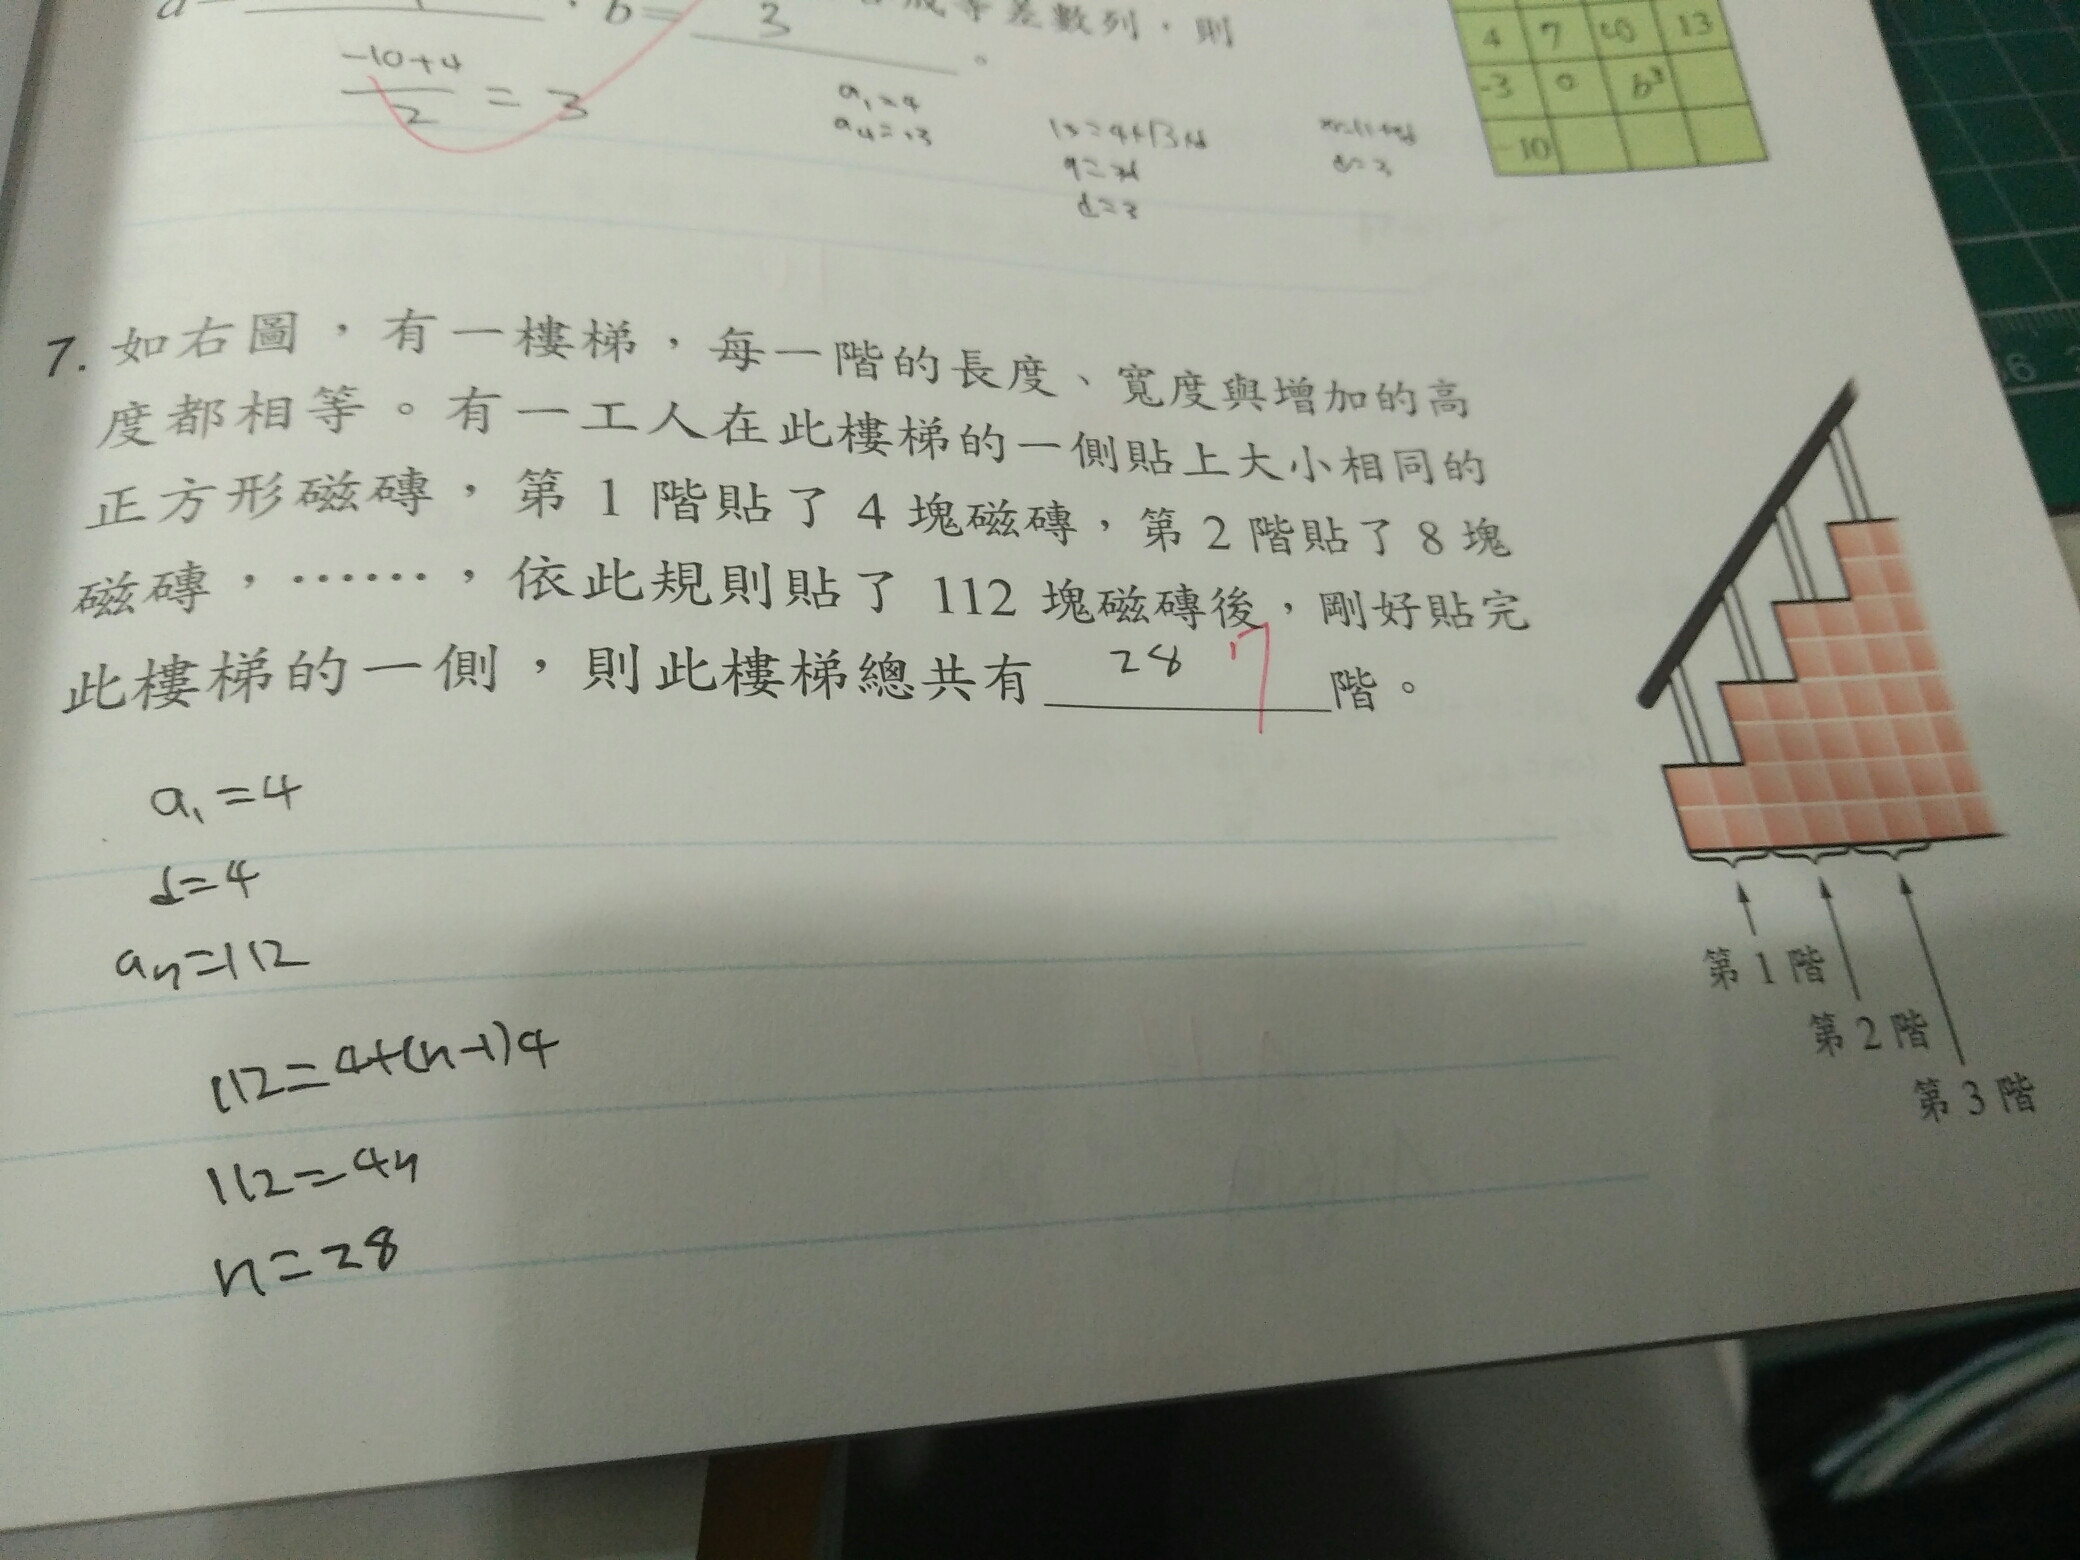 b= 3 成等差數列，則
。
-10+4
2 = 3
a₁=4
d=3
4 7 10 13
-3 0 b3
-10
7. 如右圖，有一樓梯，每一階的長度、寬度與增加的高
度都相等。有一工人在此樓梯的一側貼上大小相同的
正方形磁磚，第 1 階貼了 4 塊磁磚，第 2 階貼了 8 塊
磁磚，……，依此規則貼了 112 塊磁磚後，剛好貼完
此樓梯的一側，則此樓梯總共有 28 7 階。
a₁=4
d=4
aₙ=112
112=4+(n-1)4
112=4n
n=28
第 1 階
第 2 階
第 3 階